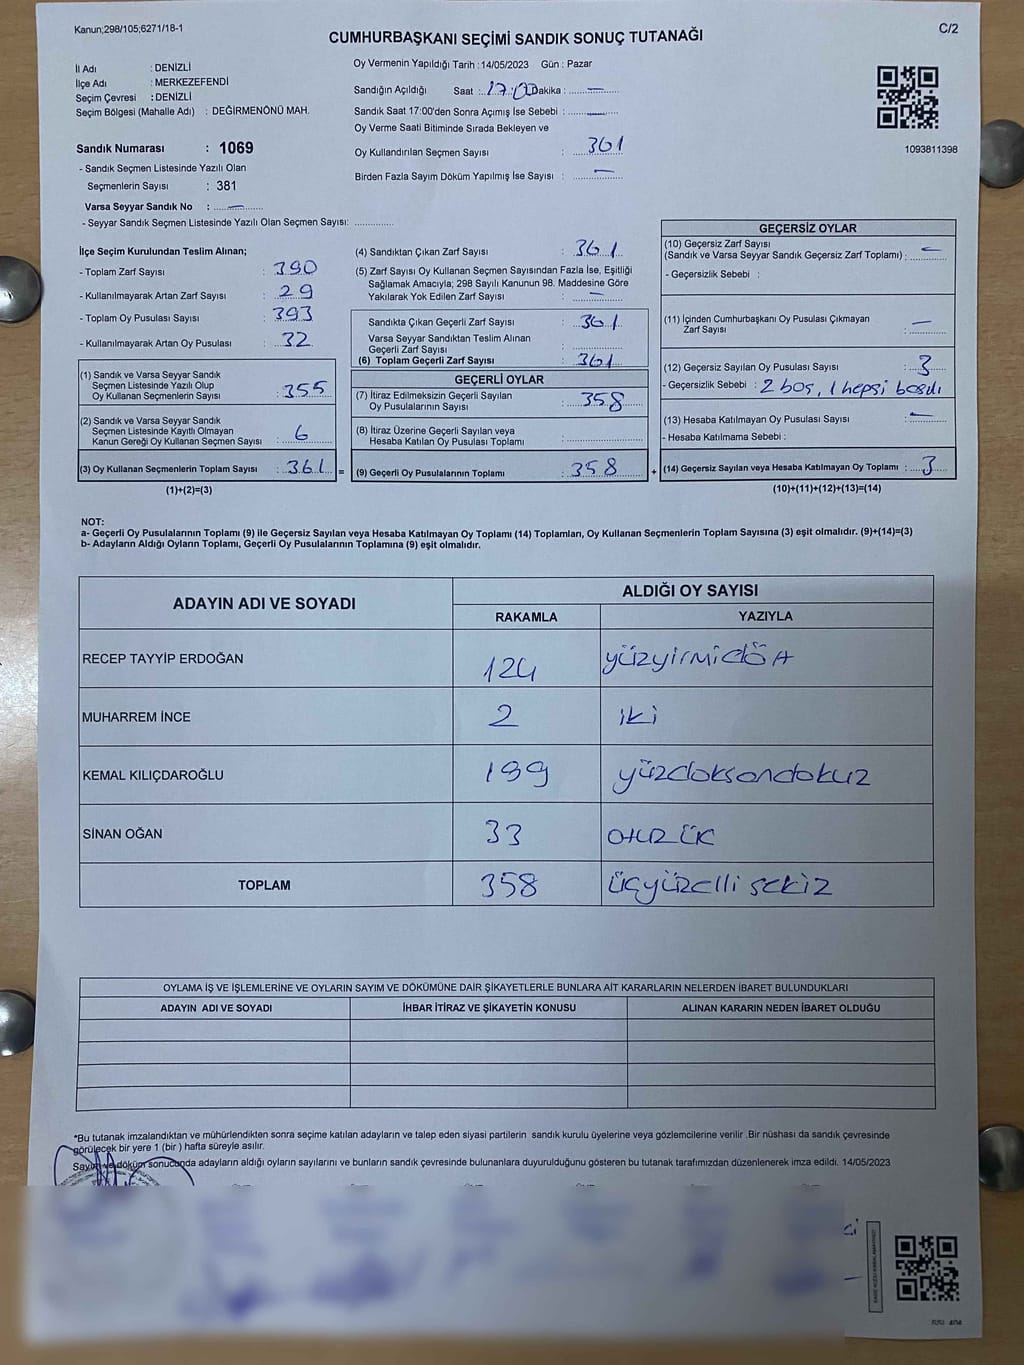 Kanun;298/105;6271/18-1
C/2
CUMHURBAŞKANI SEÇİMİ SANDIK SONUÇ TUTANAĞI
İl Adı : DENİZLİ
İlçe Adı : MERKEZEFENDİ
Seçim Çevresi : DENİZLİ
Seçim Bölgesi (Mahalle Adı) : DEĞİRMENÖNÜ MAH.
Sandık Numarası : 1069
- Sandık Seçmen Listesinde Yazılı Olan
Seçmenlerin Sayısı : 381
Varsa Seyyar Sandık No : —
- Seyyar Sandık Seçmen Listesinde Yazılı Olan Seçmen Sayısı: ............
Oy Vermenin Yapıldığı Tarih : 14/05/2023 Gün : Pazar
Sandığın Açıldığı Saat : 17:00 Dakika : —
Sandık Saat 17:00'den Sonra Açımış İse Sebebi : —
Oy Verme Saati Bitiminde Sırada Bekleyen ve
Oy Kullandırılan Seçmen Sayısı : 361
Birden Fazla Sayım Döküm Yapılmış İse Sayısı : —
1093811398
İlçe Seçim Kurulundan Teslim Alınan;
- Toplam Zarf Sayısı : 390
- Kullanılmayarak Artan Zarf Sayısı : 29
- Toplam Oy Pusulası Sayısı : 393
- Kullanılmayarak Artan Oy Pusulası : 32
(1) Sandık ve Varsa Seyyar Sandık
Seçmen Listesinde Yazılı Olup
Oy Kullanan Seçmenlerin Sayısı : 355
(2) Sandık ve Varsa Seyyar Sandık
Seçmen Listesinde Kayıtlı Olmayan
Kanun Gereği Oy Kullanan Seçmen Sayısı : 6
(3) Oy Kullanan Seçmenlerin Toplam Sayısı : 361 =
(1)+(2)=(3)
(4) Sandıktan Çıkan Zarf Sayısı : 361
(5) Zarf Sayısı Oy Kullanan Seçmen Sayısından Fazla İse, Eşitliği
Sağlamak Amacıyla; 298 Sayılı Kanunun 98. Maddesine Göre
Yakılarak Yok Edilen Zarf Sayısı : —
Sandıkta Çıkan Geçerli Zarf Sayısı : 361
Varsa Seyyar Sandıktan Teslim Alınan
Geçerli Zarf Sayısı :
(6) Toplam Geçerli Zarf Sayısı : 361
GEÇERLİ OYLAR
(7) İtiraz Edilmeksizin Geçerli Sayılan
Oy Pusulalarının Sayısı : 358
(8) İtiraz Üzerine Geçerli Sayılan veya
Hesaba Katılan Oy Pusulası Toplamı :
(9) Geçerli Oy Pusulalarının Toplamı : 358 +
GEÇERSİZ OYLAR
(10) Geçersiz Zarf Sayısı
(Sandık ve Varsa Seyyar Sandık Geçersiz Zarf Toplamı) : —
- Geçersizlik Sebebi :
(11) İçinden Cumhurbaşkanı Oy Pusulası Çıkmayan
Zarf Sayısı : —
(12) Geçersiz Sayılan Oy Pusulası Sayısı : 3
- Geçersizlik Sebebi : 2 boş, 1 hepsi basdı
(13) Hesaba Katılmayan Oy Pusulası Sayısı : —
- Hesaba Katılmama Sebebi :
(14) Geçersiz Sayılan veya Hesaba Katılmayan Oy Toplamı : 3
(10)+(11)+(12)+(13)=(14)
NOT:
a- Geçerli Oy Pusulalarının Toplamı (9) ile Geçersiz Sayılan veya Hesaba Katılmayan Oy Toplamı (14) Toplamları, Oy Kullanan Seçmenlerin Toplam Sayısına (3) eşit olmalıdır. (9)+(14)=(3)
b- Adayların Aldığı Oyların Toplamı, Geçerli Oy Pusulalarının Toplamına (9) eşit olmalıdır.
ADAYIN ADI VE SOYADI
ALDIĞI OY SAYISI
RAKAMLA YAZIYLA
RECEP TAYYİP ERDOĞAN 124 yüzyirmidört
MUHARREM İNCE 2 iki
KEMAL KILIÇDAROĞLU 199 yüzdoksandokuz
SİNAN OĞAN 33 otuz üç
TOPLAM 358 üçyüzelli sekiz
OYLAMA İŞ VE İŞLEMLERİNE VE OYLARIN SAYIM VE DÖKÜMÜNE DAİR ŞİKAYETLERLE BUNLARA AİT KARARLARIN NELERDEN İBARET BULUNDUKLARI
ADAYIN ADI VE SOYADI İHBAR İTİRAZ VE ŞİKAYETİN KONUSU ALINAN KARARIN NEDEN İBARET OLDUĞU
*Bu tutanak imzalandıktan ve mühürlendikten sonra seçime katılan adayların ve talep eden siyasi partilerin sandık kurulu üyelerine veya gözlemcilerine verilir .Bir nüshası da sandık çevresinde
görülecek bir yere 1 (bir ) hafta süreyle asılır.
Sayım ve döküm sonucunda adayların aldığı oyların sayılarını ve bunların sandık çevresinde bulunanlara duyurulduğunu gösteren bu tutanak tarafımızdan düzenlenerek imza edildi. 14/05/2023